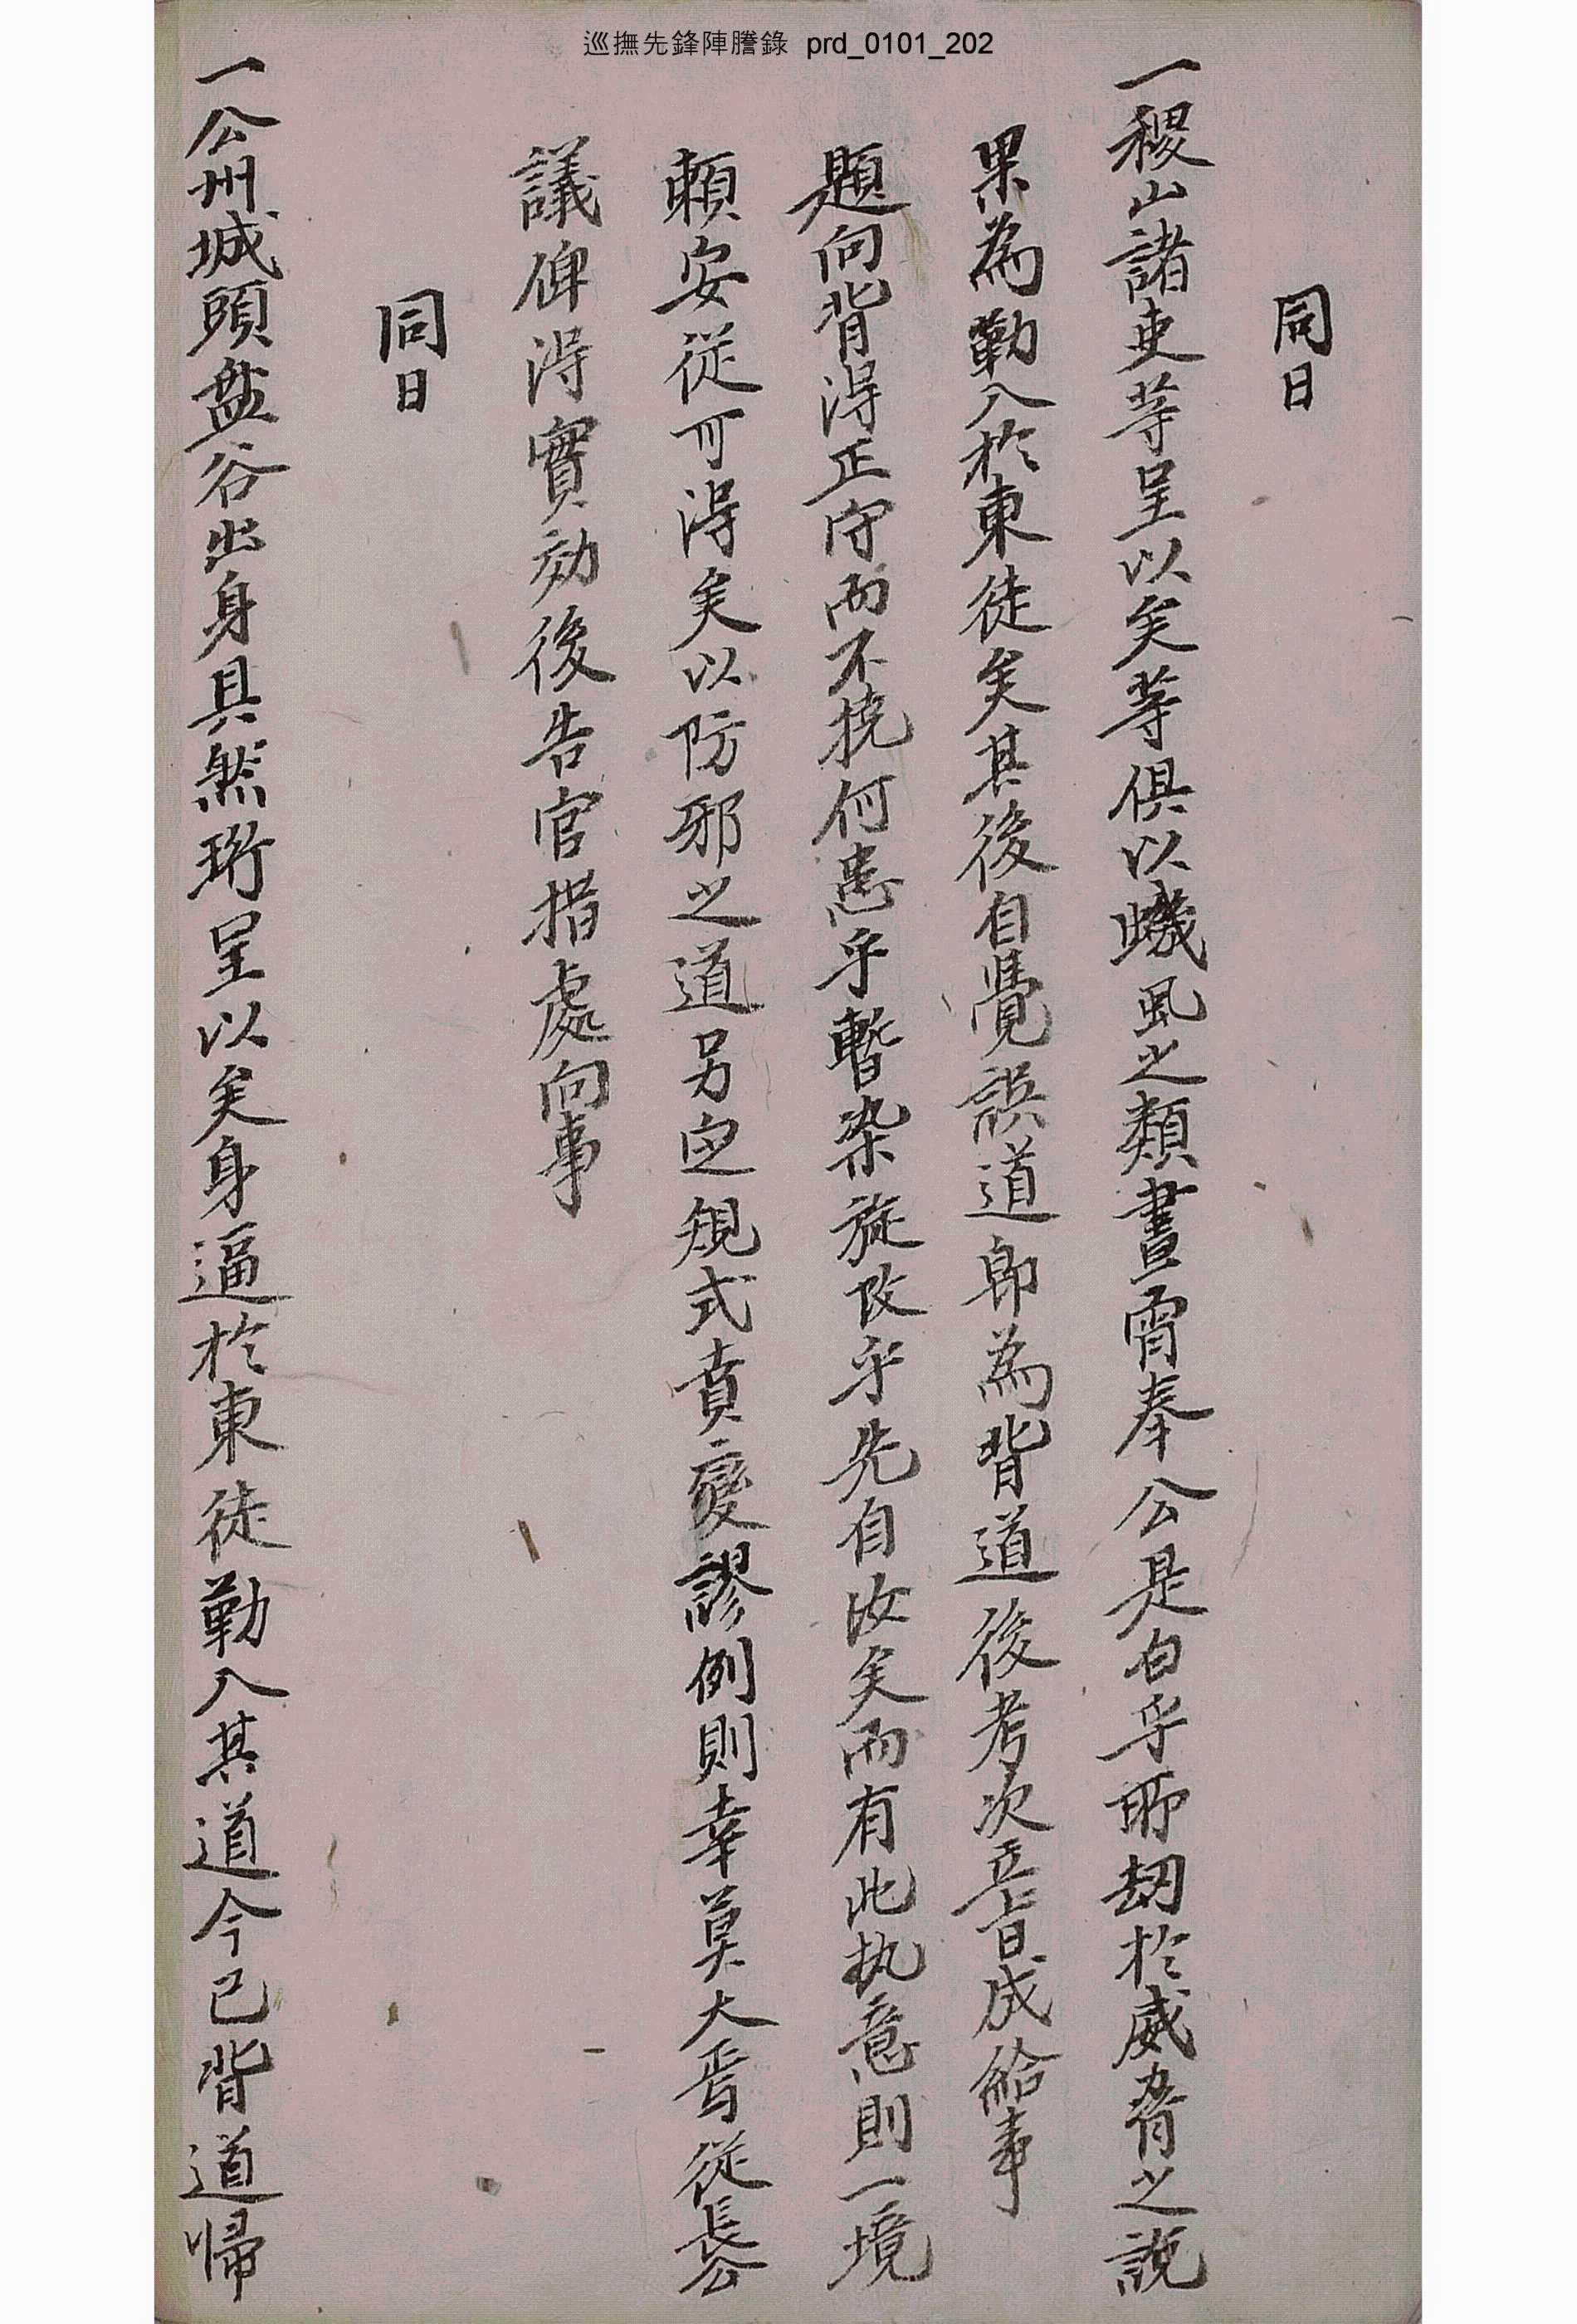 巡撫先鋒陣謄錄 prd_0101_202
同日
一稷山諸吏等呈以矣等俱以蟣虱之類晝宵奉公是白乎所劫於威脅之說
果為勒入於東徒矣其後自覺誤道卽為背道後考次立旨成給事
題向背得正守而不撓何患乎暫染旋改乎先自汝矣而有此执意則一境
頼安從可得矣以防邪之道另定規式責變謬例則幸莫大焉從長公
議俾得實効後告官措處向事
同日
一公州城頭盤谷出身具然珩呈以矣身逼於東徒勒入其道今已背道歸